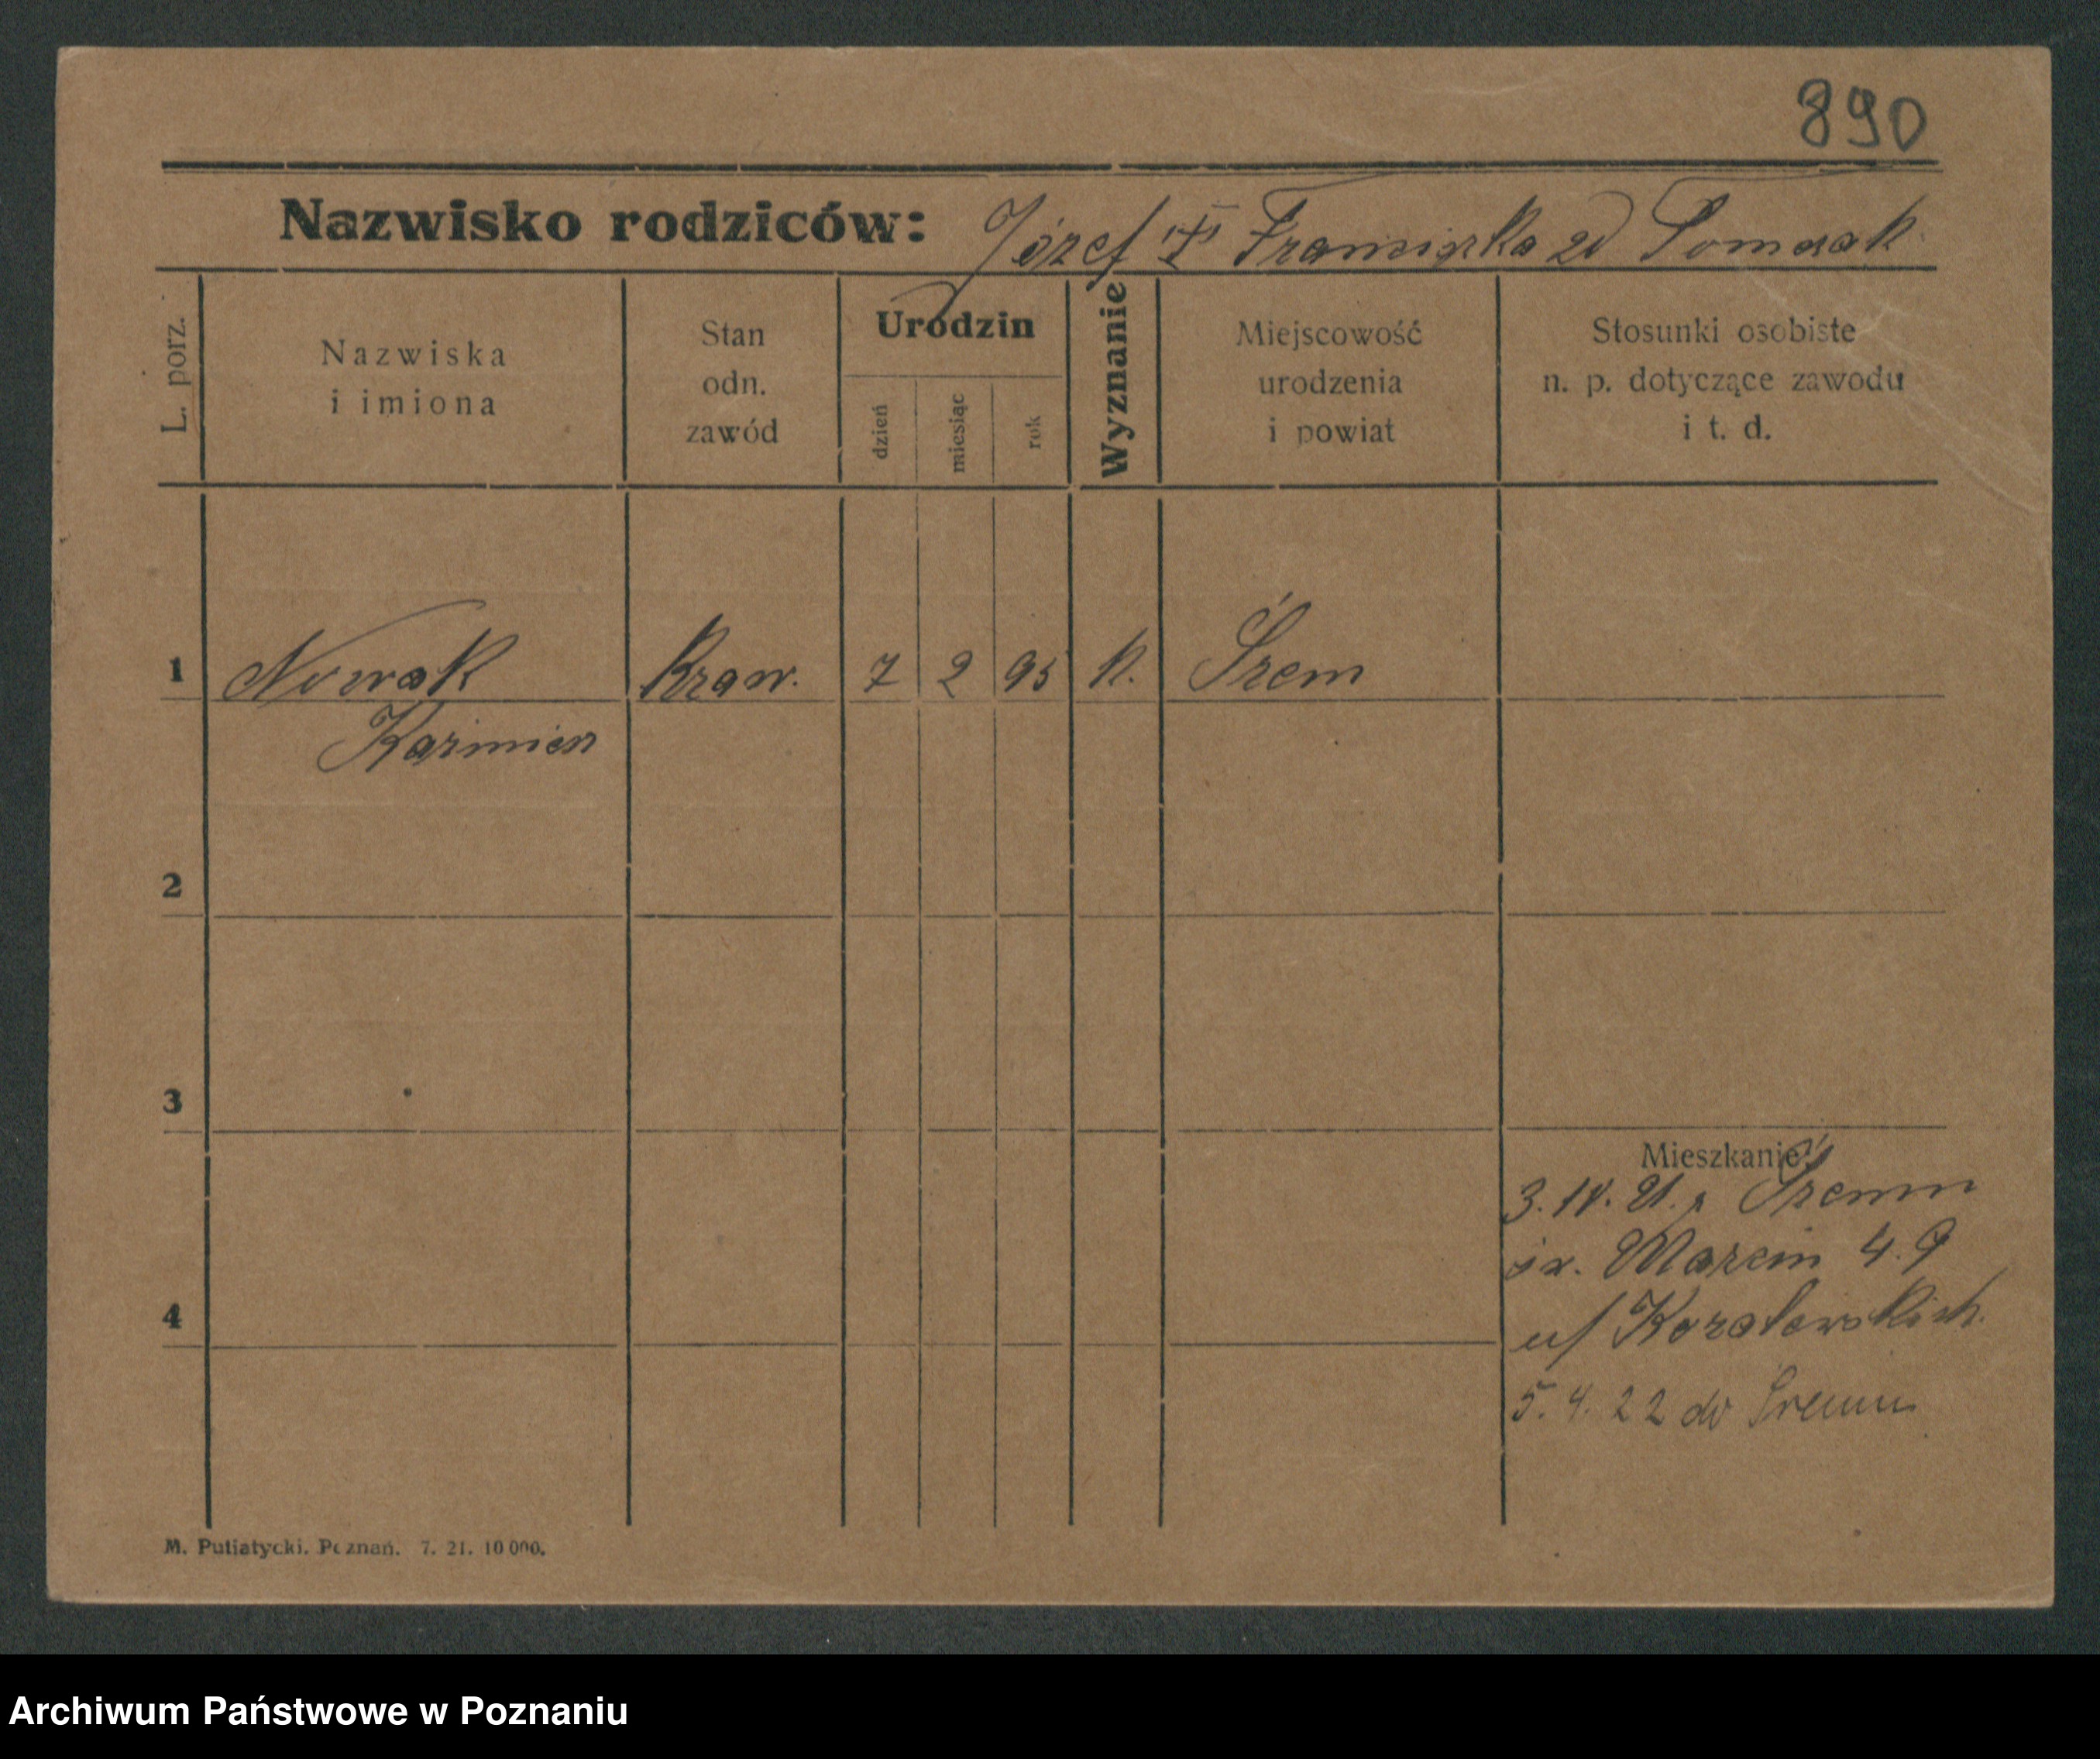 890
Nazwisko rodziców: Józef i Franciszka zd Tomczak
L. porz.
Nazwiska
i imiona
Stan
odn.
zawód
Urodzin
dzień
miesiąc
rok
Wyznanie
Miejscowość
urodzenia
i powiat
Stosunki osobiste
n. p. dotyczące zawodu
i t. d.
1 Nowak Kraw. 7 2 95 k. Śrem
Kazimierz
2
3
Mieszkanie:
3. IV. 21. z Śremu
św. Marcin 49
u/
4
5. 4. 22 do Śremu
M. Putiatycki. Poznań. 7. 21. 10 000.
Archiwum Państwowe w Poznaniu